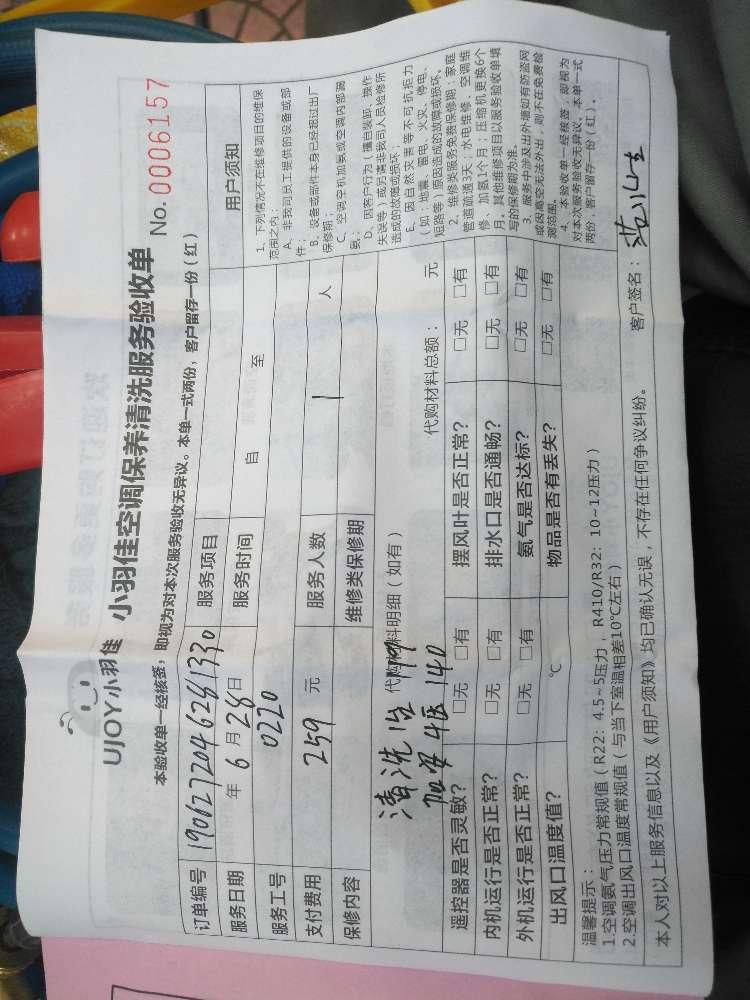 UJOY小羽佳 小羽佳空调保养清洗服务验收单 No. 0006157
本验收单一经核签，即视为对本次服务验收无异议。本单一式两份，客户留存一份（红）
订单编号 190127204628133D 服务项目
服务日期 年 6 月 28 日 服务时间 自 至
服务工号 0220
支付费用 259 元 服务人数 1 人
保修内容 维修类保修期
代购材料明细（如有） 代购材料总额： 元
清洗 1台 119
加安 4匹 140
遥控器是否灵敏？ □无 □有 摆风叶是否正常？ □无 □有
内机运行是否正常？ □无 □有 排水口是否通畅？ □无 □有
外机运行是否正常？ □无 □有 氨气是否达标？ □无 □有
出风口温度值？ ℃ 物品是否有丢失？ □无 □有
用户须知
1、下列情况不在维修项目的维保
范围之内：
A、非我司员工提供的设备或部
件；
B、设备或部件本身已经超过出厂
保修期；
C、空调空机加氨或空调内部漏
氨；
D、因客户行为（擅自装卸、操作
失误等）或另请非我司人员检修所
造成的故障或损坏；
E、因自然灾害等不可抗拒力
（如：地震、雷电、火灾、停电、
短路等）原因造成的故障或损坏。
2、维修类服务免费保修期：家庭
管道疏通3天；水电维修、空调维
修、加氨1个月；压缩机更换6个
月。其他维修项目以服务验收单填
写的保修期为准。
3、服务中涉及出外墙如有防盗网
或因高空无法外出，则不在免费检
测范围。
4、本验收单一经核签，即视为
对本次服务验收无异议。本单一式
两份，客户留存一份（红）。
温馨提示：
1.空调氨气压力常规值（R22：4.5~5压力，R410/R32：10~12压力）
2.空调出风口温度常规值（与当下室温相差10℃左右）
本人对以上服务信息以及《用户须知》均已确认无误，不存在任何争议纠纷。 客户签名：